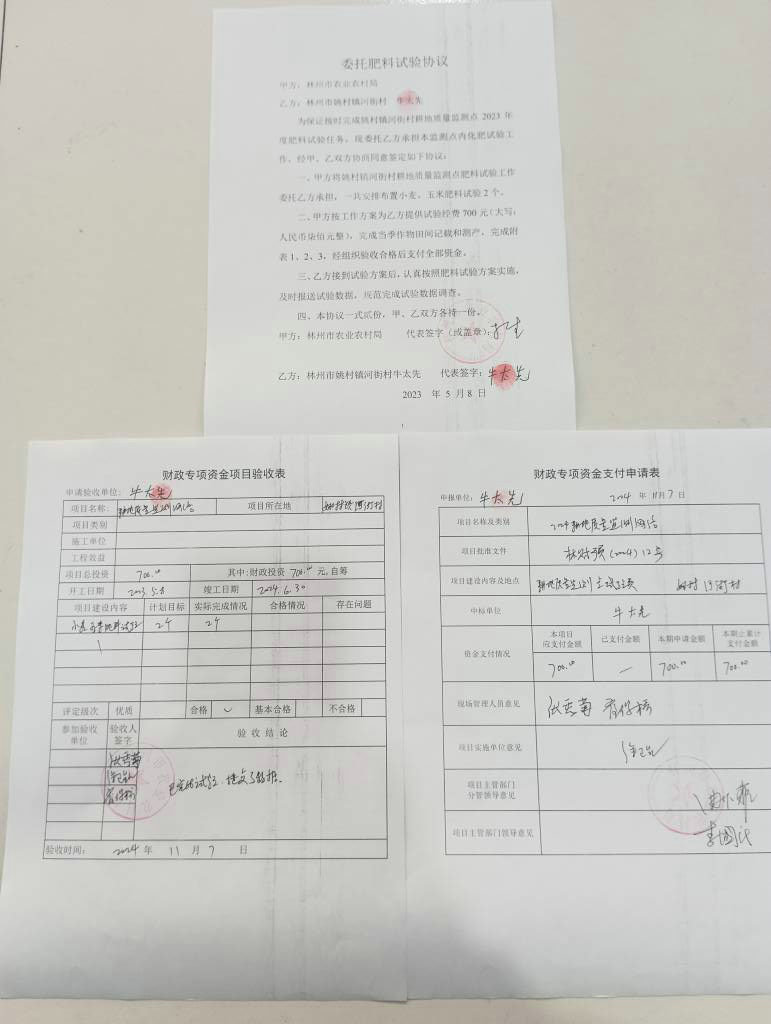 委托肥料试验协议
甲方：林州市农业农村局
乙方：林州市姚村镇河街村 牛太先
为保证按时完成姚村镇河街村耕地质量监测点 2023 年
度肥料试验任务，现委托乙方承担本监测点内化肥试验工
作，经甲、乙双方协商同意签定如下协议：
一、甲方将姚村镇河街村耕地质量监测点肥料试验工作
委托乙方承担，一共安排布置小麦、玉米肥料试验 2 个。
二、甲方按工作方案为乙方提供试验经费 700 元（大写：
人民币柒佰元整），完成当季作物田间记载和测产，完成附
表 1、2、3，经组织验收合格后支付全部资金。
三、乙方接到试验方案后，认真按照肥料试验方案实施，
及时报送试验数据，规范完成试验数据调查。
四、本协议一式贰份，甲、乙双方各持一份。
甲方：林州市农业农村局 代表签字（或盖章）：
乙方：林州市姚村镇河街村牛太先 代表签字：牛太先
2023 年 5 月 8 日
1
财政专项资金项目验收表
申请验收单位：牛太先
项目名称： 耕地质量监测网络 项目所在地 姚村镇河街村
项目类别
施工单位
工程效益
项目总投资 700.00 其中：财政投资 700.00 元，自筹
开工日期 2023.5.8 竣工日期 2024.6.30
项目建设内容 计划目标 实际完成情况 合格情况 存在问题
小麦玉米肥料试验 2个 2个
评定级次 优质 合格 ✓ 基本合格 不合格
参加验收单位 验收人签字 验收结论
已完成试验，提交了数据。
验收时间： 2024 年 11 月 7 日
财政专项资金支付申请表
申报单位：牛太先 2024 年 11月 7 日
项目名称及类别 2024耕地质量监测网络
项目批准文件 林财预(2024)12号
项目建设内容及地点 姚村河街村
中标单位 牛太先
资金支付情况 本项目应支付金额 已支付金额 本期申请金额 本期止累计支付金额
700.00 — 700.00 700.00
现场管理人员意见
项目实施单位意见
项目主管部门分管领导意见
项目主管部门领导意见